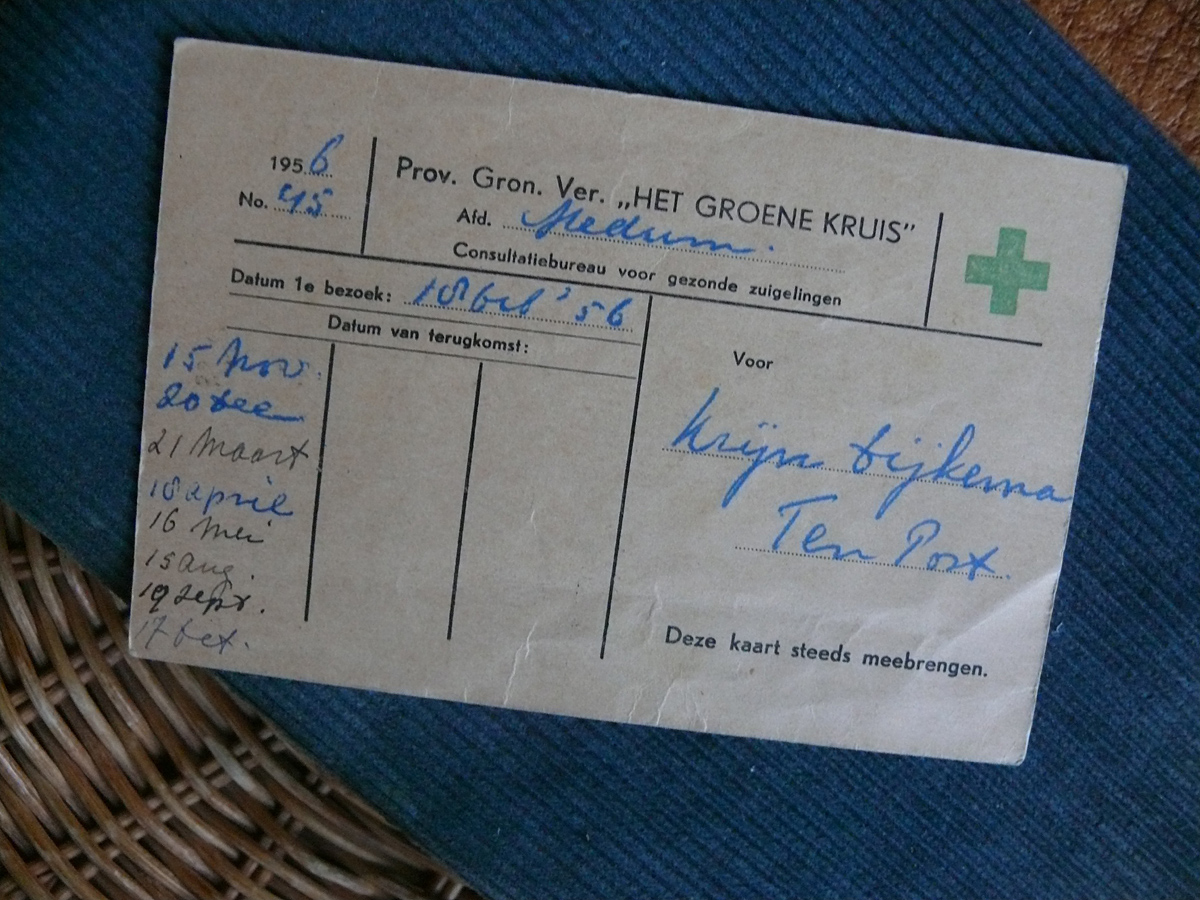 1956
No. 45
Prov. Gron. Ver. „HET GROENE KRUIS"
Afd. Stedum.
Consultatiebureau voor gezonde zuigelingen
Datum 1e bezoek: 18 Oct '56
Datum van terugkomst:
15 Nov.
20 Dec
21 Maart
18 april
16 Mei
15 Aug.
19 Sept.
17 Oct.
Voor
Krijn Dijkema
Ten Post.
Deze kaart steeds meebrengen.